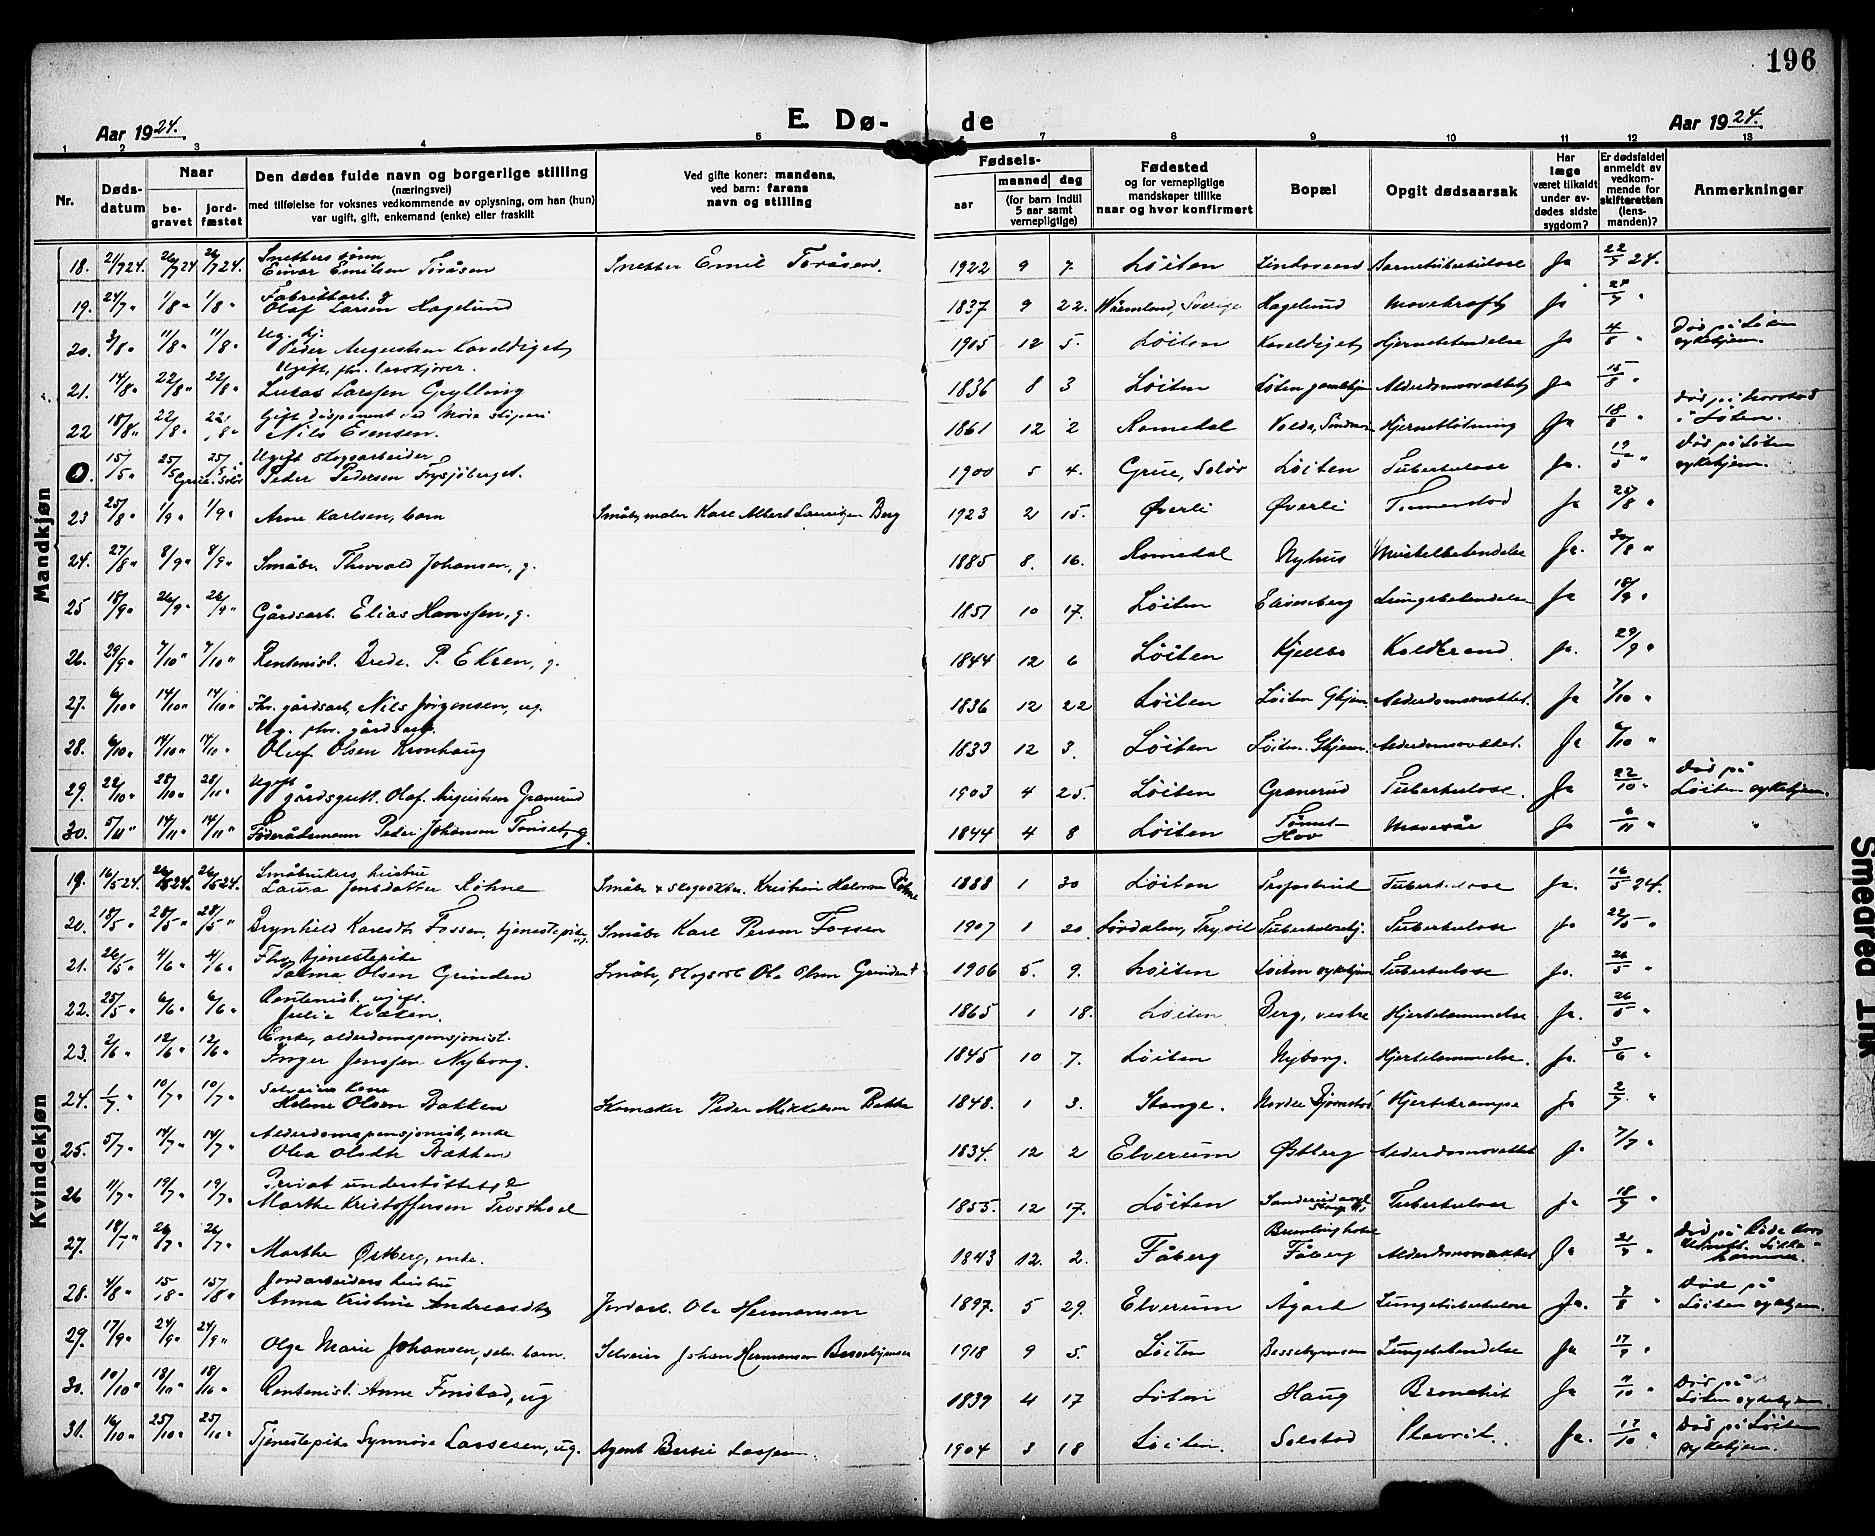 196
Aar 1924.
E. Døde
Aar 1924.
1 2 3 4 5 7 8 9 10 11 12 13
Nr.
Dødsdatum
Naar
begravet
jordfæstet
Den dødes fulde navn og borgerlige stilling
(næringsvei)
med tilføielse for voksnes vedkommende av oplysning, om han (hun)
var ugift, gift, enkemand (enke) eller fraskilt
Ved gifte koner: mandens,
ved barn: farens
navn og stilling
Fødsels-
aar
maaned
dag
(for barn indtil
5 aar samt
vernepligtige)
Fødested
og for vernepligtige
mandskaper tillike
naar og hvor konfirmert
Bopæl
Opgit dødsaarsak
Har
læge
været tilkaldt
under avdødes sidste
sygdom?
Er dødsfaldet
anmeldt av
vedkommende for
skifteretten
(lensmanden)?
Anmerkninger
Mandkjøn
18. 21/7 24. 26/7 24 26/7 24. Snekkers sønn Einar Emilsen Toråsen Snekker Emil Toråsen. 1922 9 7. Løiten Lindsveen Barnetuberkulose Ja 22/7 24.
19. 24/7 " 1/8 " 1/8 " Fabrikkarb. g Olaf Larsen Hagelund 1837 9 22. Wärmland, Sverige Hagelund Mavekræft Ja
20. 3/8 " 11/8 " 11/8 " Peder Augustsen Kaveldiget 1905 12 5. Løiten Kaveldiget Hjernebetendelse Ja 4/8 " Død på Løten sykehjem.
21. 14/8 " 22/8 " 22/8 " Ugift, fhv. Lukas Larssen Grylling 1836 8 3 Løiten Løten gamlehjem Alderdomssvakhet Ja 15/8 "
22 18/8 " 22/8 " 22/8 " Gift disponent ved Nils Esensen. 1861 12 2 Romedal Volda, Sindmør Hjerneblødning Ja 18/8 " Død på i Løten.
0. 15/5 " 25/5 Grue, Solør 25/5 " Ugift skogsarbeider Peder Pedersen Frysjøberget. 1900 5 4. Grue, Solør Løiten Tuberkulose Ja. 19/5 " Død på Løten sykehjem.
23 25/8 " 1/9 " 1/9 " Arne Karlsen, barn Småbr, maler Karl Albert Lauritsen Berg 1923 2 15. Øverli Øverli Ja 25/8 "
24. 27/8 " 8/9 " 8/9 " Småbr. Thorvald Johansen, g. 1885 8. 16. Romedal Nyhus Ja. 30/8 "
25 18/9 " 26/9 " 26/9 " Gårdsarb. Elias Hanssen, g. 1851 10 17. Løiten Lungebetendelse Ja 18/9 "
26. 29/9 " 7/10 " 7/10 " Rentenist. Brede. P. Eksen, g. 1844 12 6 Løiten Kjelsbo Koldbrand Ja. 29/9 "
27. 6/10 " 14/10 " 14/10 " Fhv. gårdsarb, Nils Jørgensen, ug. 1836 12 22 Løiten Løiten Ghjem Alderdomssvakhet. Ja 7/10 "
28. 6/10 " 14/10 " 14/10 " Ug. fhv. gårdsarb. Oluf Olsen Kronhaug 1833 12 3. Løiten Løiten. Ghjem. Alderdomssvakhet. Ja 6/10 "
29. 22/10 " 28/10 " 28/10 " Ugift gårdsgutt. Olaf. Augustsen Granerud 1903 4 25. Løiten Granerud Tuberkulose. Ja 22/10 " Død på Løiten sykehjem.
30. 5/11 " 14/11 " 14/11 " Føderådsmann Peder Johansen Tønset, g. 1844 4 8 Løiten Tønset-Hov Mavesår Ja 6/11 " "
Kvindekjøn
19. 16/5 24. 26/5 24. 26/5 24. Småbrukers hustru Laura Jensdatter Röhne Småbr & skogvokter. Kristian Halvorsen Röhne 1888 1 30 Løiten Tuberkulose Ja. 16/5 24.
20. 18/5 " 28/5 " 28/5 " Brynhild Karesdtr Fossen, tjenestepike ug. Småbr Karl Person Fossen 1907 1 20 Sørdalen, Trysil Tuberkulosehj. Tuberkulose Ja 22/5 "
21. 26/5 " 4/6 " 4/6 " Fhv. tjenestepike Palma Olsen Grinden Småbr, skogsarb Ole Olsen Grinden 1906 5. 9. Løiten Løiten sykehjem Tuberkulose Ja. 26/5 "
22. 25/5 " 6/6 " 6/6 " Rentenist. ugift. Julie Kvæken. 1865 1 18. Løiten Berg, vestre Hjertelammelse Ja. 26/5 "
23. 2/6 " 12/6 " 12/6 " Enke, alderdomspensjonist. Inger Jenssen Nyborg. 1845 10 7. Løiten Nyborg. Hjertelammelse. Ja. 3/6 "
24. 1/7. 10/7 " 10/7 " Selveiers kone Helene Olsen Bakken Skomaker Peder Mikkelsen Bakke 1848. 1 3. Stange. Nordre Bjørnstad Hjertekrampe Ja 2/7. "
25. 5/7 " 14/7 " 14/7 " Alderdomspensjonist, enke Olea Olsdtr Bakken 1834. 12 2 Elverum Østberg Alderdomssvakhet Ja. 7/7 "
26 11/7 " 19/7 " 19/7 " Privat understøttet, g Marthe Kristoffersen Frosthoel 1855. 12 17. Løiten Sanderud asyl Stange Tuberkulose Ja 18/7 "
27. 18/7 " 26/7 " 26/7 " Marthe Østberg, enke. 1843 12. 2. Fåberg Fåberg Alderdomssvakhet Ja 21/7 " Død på Røde Kors
28. 4/8 " 15/8 " 15/8 " Jordarbeiders hustru Anna Kristine Andreasdtr Jordarb. Ole Hermansen 1897. 5 29. Elverum Ågard Lungetuberkulose Ja. 7/8 " Døde på Løiten sykehjem.
29. 17/9 " 24/9 " 24/9 " Olga Marie Johansen, selv. barn. Selveier Johan Hermansen Bessebyenseie 1918 9 5. Løiten Lungebetendelse Ja 17/9 "
30. 10/10 " 18/10 " 18/10 " Rentenist. Anne Finstad, ug 1839 4 17 Løten Haug Bronchit Ja 11/10 " Død på Løten sykehjem.
31. 16/10 " 25/10 " 25/10 " Tjenestepike Synnøve Lassesen, ug. Agent Lassesen. 1904 3 18 Løiten. Solstad Plevrit. Ja. 17/10 " Død på Løiten sykehjem.
Smeared Ink